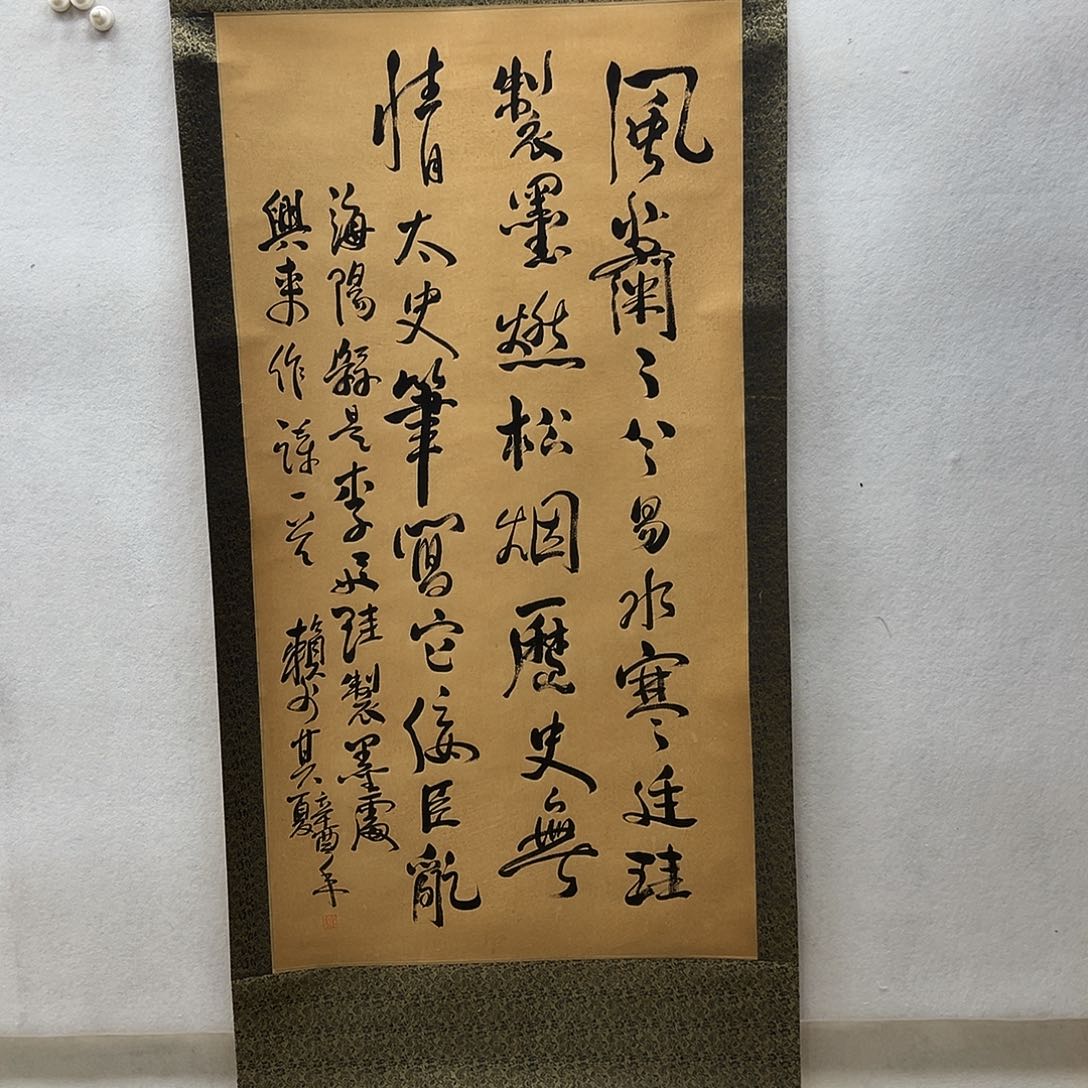 風蕭々兮易水寒廷珪
製墨燃松烟歷史無
情太史筆寫它佞臣亂
海陽縣是李廷珪製墨處
興來作詩一首
賴少其辛酉年夏